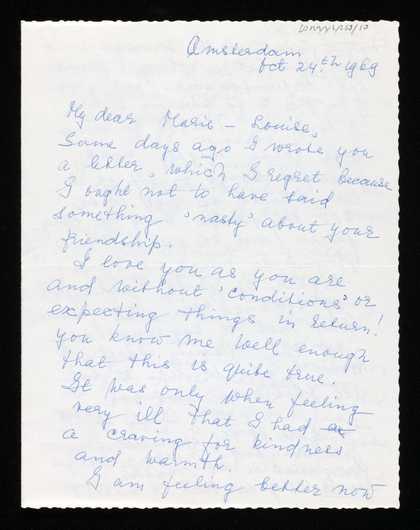 Amsterdam
Oct 24th 1969
My dear Marie - Louise,
Some days ago I wrote you
a letter, which I regret because
I ought not to have said
something 'nasty' about your
friendship.
I love you as you are
and without 'conditions' or
expecting things in return!
You know me well enough
that this is quite true.
It was only when feeling
very ill that I had
a craving for kindness
and warmth.
I am feeling better now